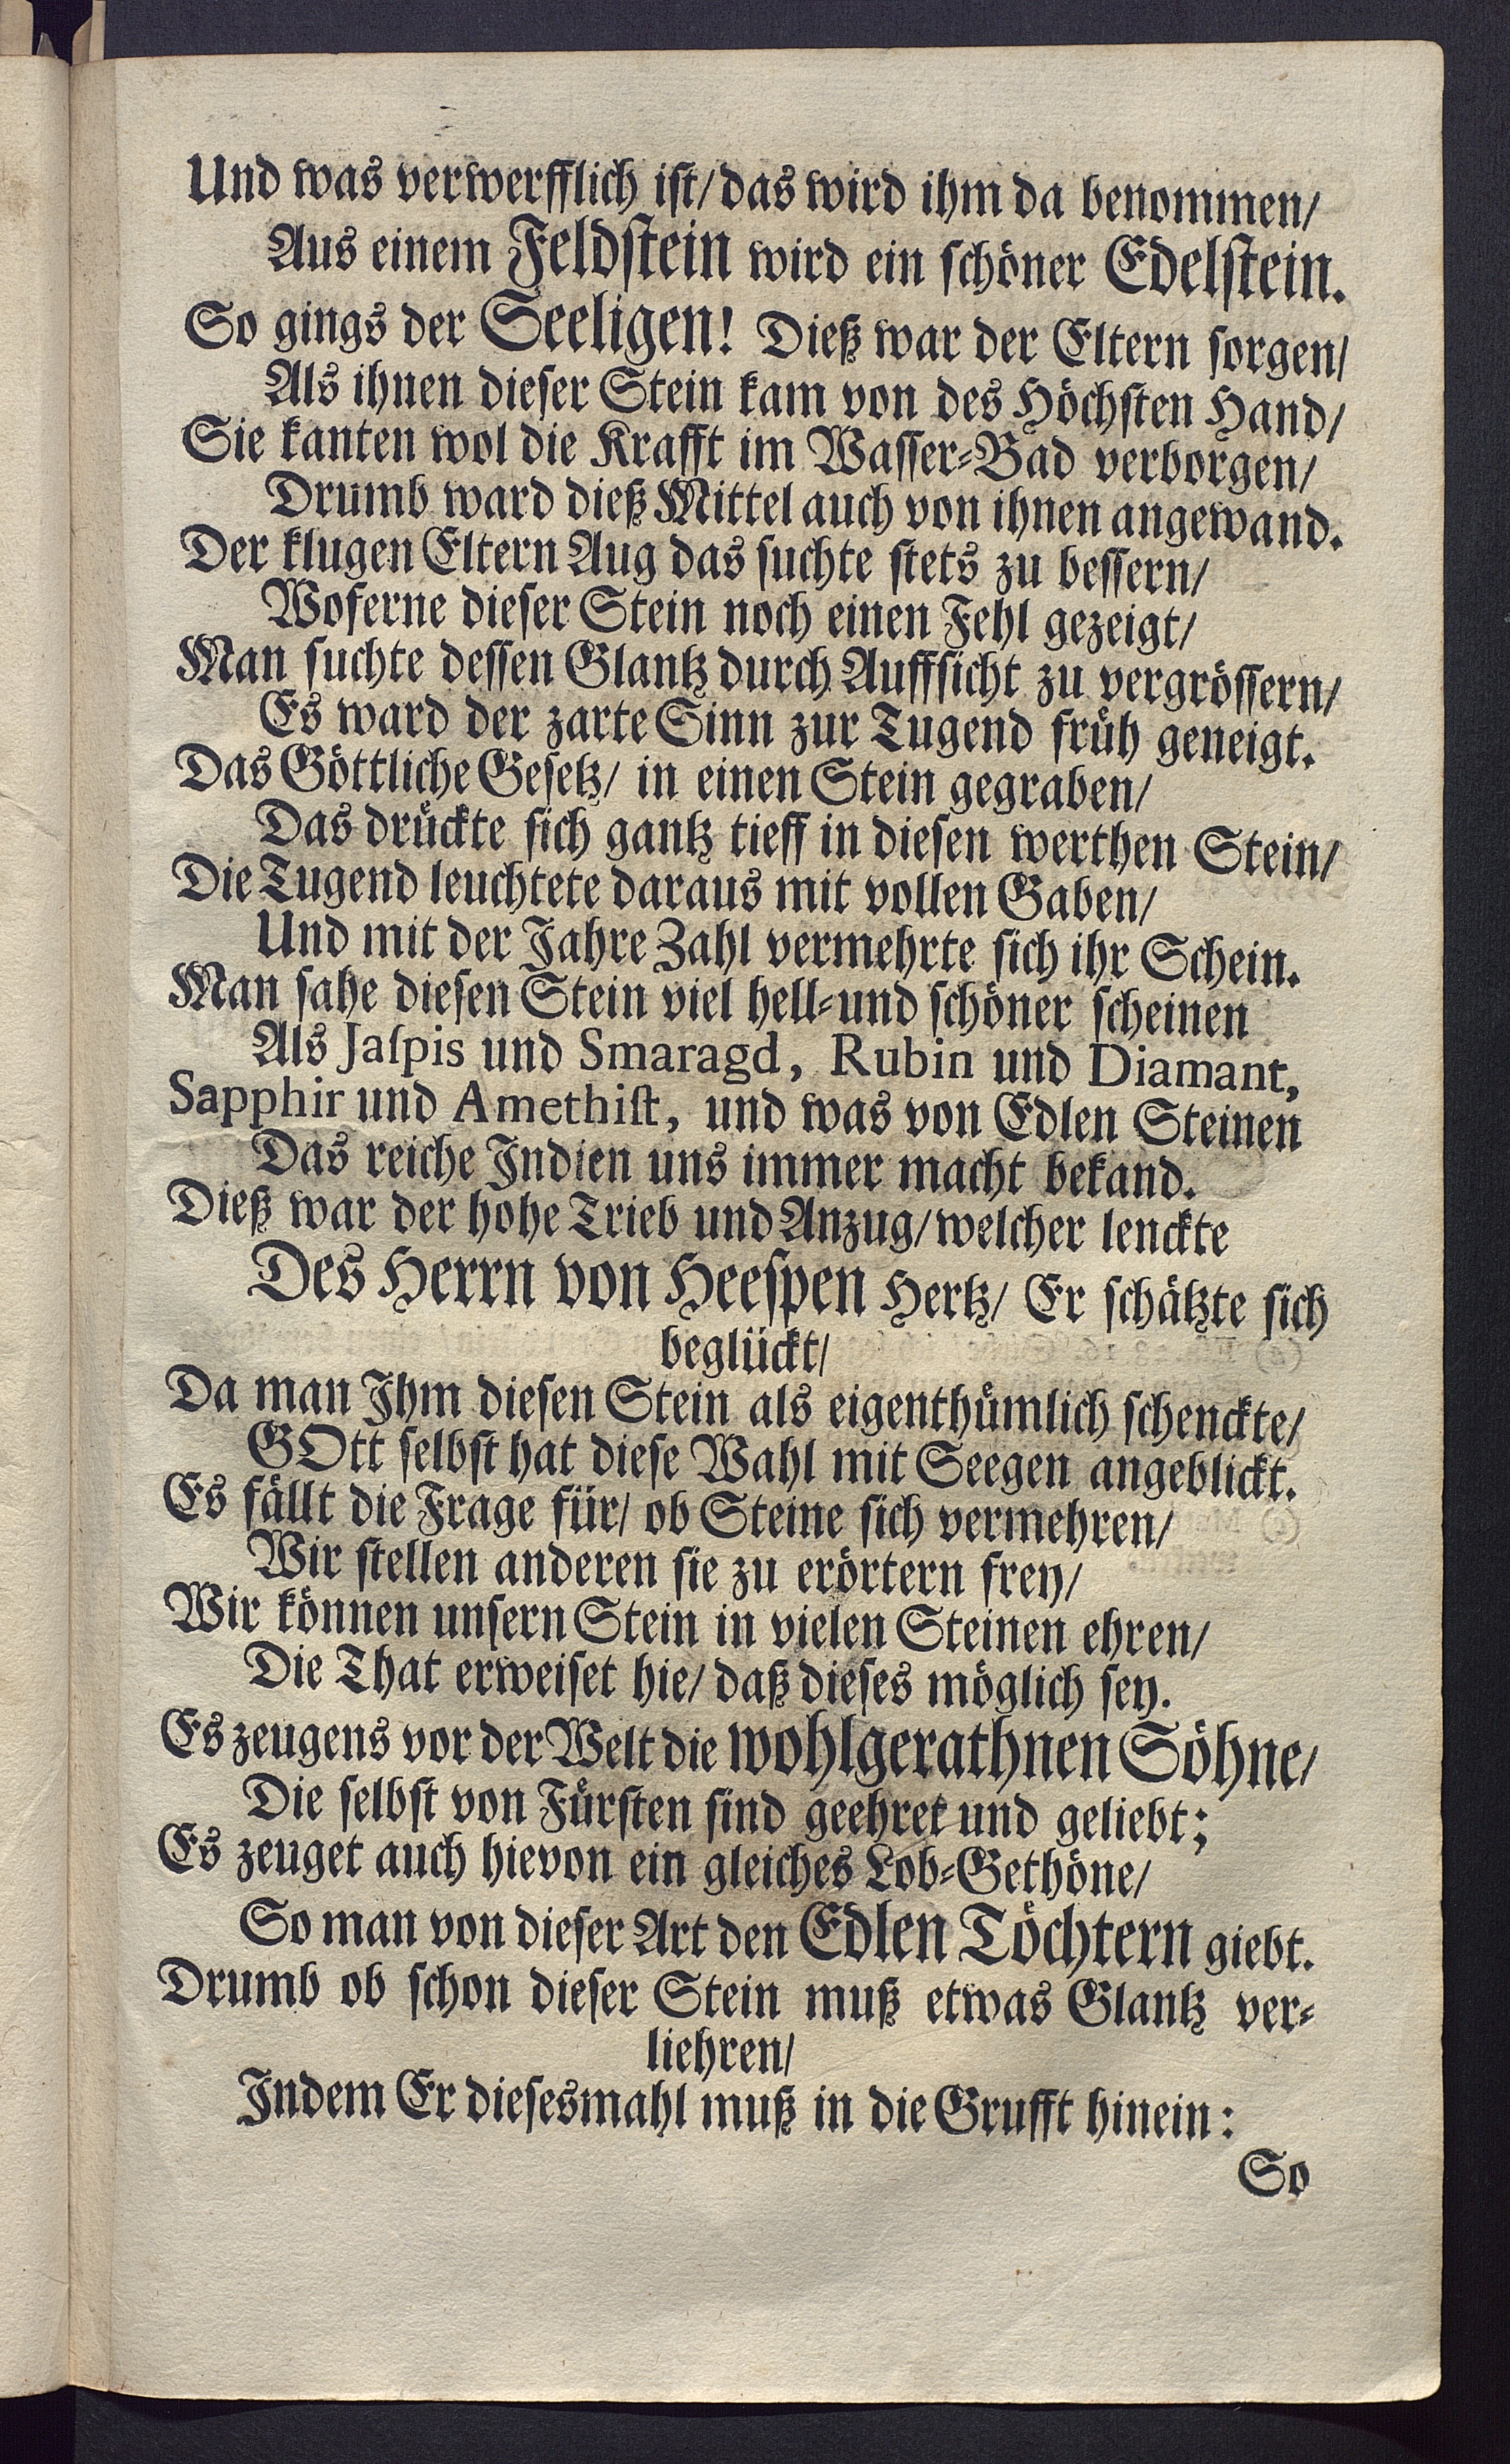 Und was verwerfflich ist/ das wird ihm da benommen/
Aus einem Feldstein wird ein schöner Edelstein.
So gings der Seeligen! Dieß war der Eltern sorgen/
Als ihnen dieser Stein kam von des Höchsten Hand/
Sie kanten wol die Krafft im Wasser-Bad verborgen/
Drumb ward dieß Mittel auch von ihnen angewand.
Der klugen Eltern Aug das suchte stets zu bessern/
Woferne dieser Stein noch einen Fehl gezeigt/
Man suchte dessen Glantz durch Auffsicht zu vergrössern/
Es ward der zarte Sinn zur Tugend früh geneigt.
Das Göttliche Gesetz/ in einen Stein gegraben/
Das drückte sich gantz tieff in diesen werthen Stein/
Die Tugend leuchtete daraus mit vollen Gaben/
Und mit der Jahre Zahl vermehrte sich ihr Schein.
Man sahe diesen Stein viel hell-und schöner scheinen
Als Jaspis und Smaragd, Rubin und Diamant,
Sapphir und Amethist, und was von Edlen Steinen
Das reiche Indien uns immer macht bekand.
Dieß war der hohe Trieb und Anzug/ welcher lenckte
Des Herrn von Heespen Hertz/ Er schätzte sich
beglückt/
Da man Ihm diesen Stein als eigenthümlich schenckte/
GOtt selbst hat diese Wahl mit Seegen angeblickt.
Es fällt die Frage für/ ob Steine sich vermehren/
Wir stellen anderen sie zu erörtern frey/
Wir können unsern Stein in vielen Steinen ehren/
Die That erweiset hie/ daß dieses möglich sey.
Es zeugens vor der Welt die wohlgerathnen Söhne/
Die selbst von Fürsten sind geehret und geliebt;
Es zeuget auch hievon ein gleiches Lob-Gethöne/
So man von dieser Art den Edlen Töchtern giebt.
Drumb ob schon dieser Stein muß etwas Glantz ver-
liehren/
Indem Er diesesmahl muß in die Grufft hinein:
So